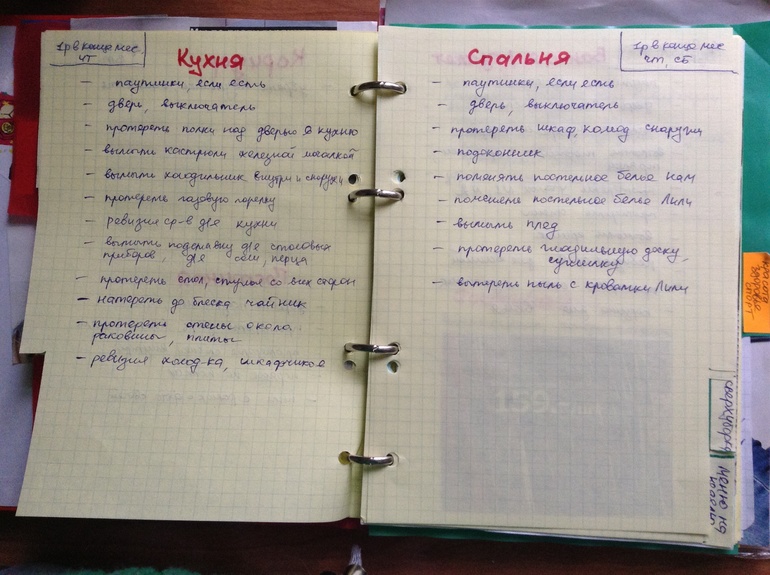 1р в каждые мес.
ЧТ
Кухня
– паутинки, если есть
– дверь, выключатель
– протереть полки над дверью в кухню
– вымыть кастрюли железной мочалкой
– вымыть холодильник внутри и снаружи
– протереть газовую горелку
– ревизия ср-в для кухни
– вымыть подставку для столовых
приборов, для соли, перца
– протереть стол, стулья со всех сторон
– натереть до блеска чайник
– протереть стены около
раковины, плиты
– ревизия холод-ка, шкафчиков
1р в мес
ЧТ, СБ
Спальня
– паутинки, если есть
– дверь, выключатель
– протереть шкаф, комод снаружи
– подоконник
– поменять постельное белье нам
– поменять постельное белье Лили
– вымыть плед
– протереть гладильную доску,
сушилку
– вытереть пыль с кроватки Лили
красота
здоровье
спорт
меню на